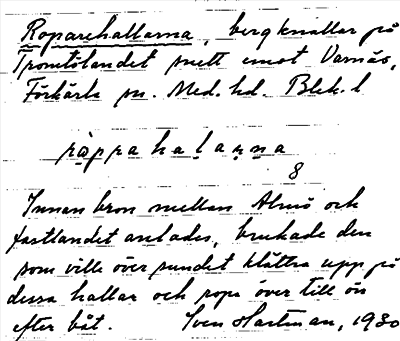 Roparehallarna, bergknallar på
Tromtölandet snett emot Varnäs,
Förkärla sn. Med. hd. Blek. l
ròppahalaṇṇa
8
Innan bron mellan Almö och
fastlandet anlades, brukade den
som ville över sundet klättra upp på
dessa hallar och ropa över till ön
efter båt. Sven Hartman, 1930